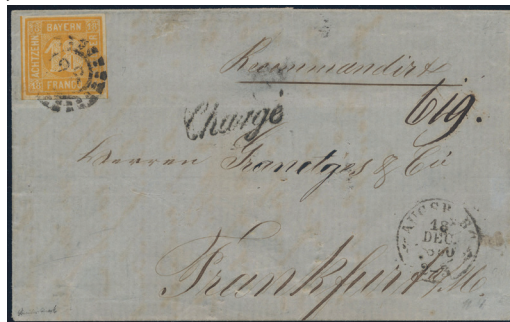 BAYERN
ACHTZEHN
18
FRANCO
Recommandirt
Chargé
Herren
& Co
AUGSBURG
18
DEC.
Frankfurt a/M.